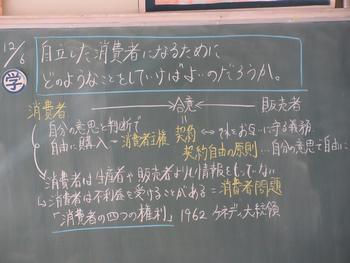 12/6
学
自立した消費者になるために
どのようなことをしていけばよいのだろうか。
消費者 → 合意 ← 販売者
自分の意思と判断で
自由に購入
消費者主権
=
契約 ⇔ それをお互いに守る義務
契約自由の原則…自分の意思で自由に
消費者は生産者や販売者よりも情報をもっていない
↳消費者は不利益を受けることがある=消費者問題
「消費者の四つの権利」 1962 ケネディ大統領